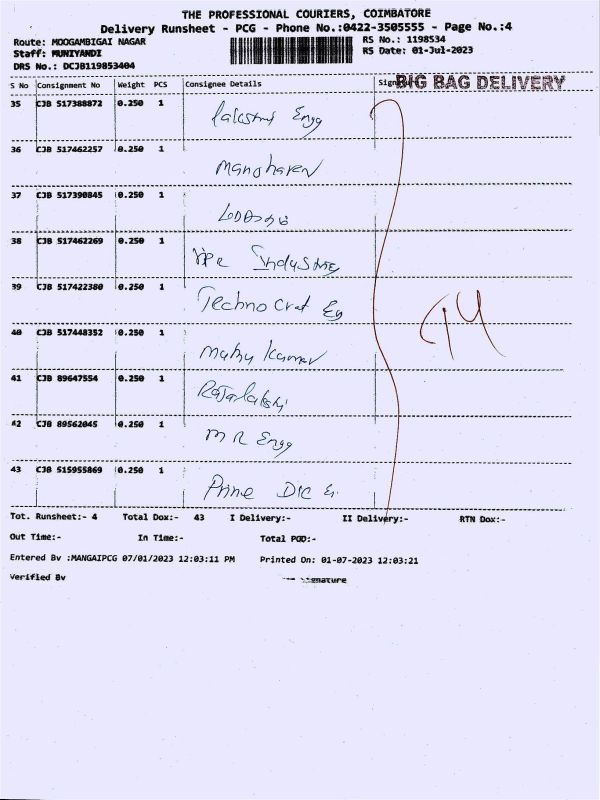 THE PROFESSIONAL COURIERS, COIMBATORE
Delivery Runsheet - PCG - Phone No.:0422-3505555 - Page No.:4
Route: MOOGAMBIGAI NAGAR
Staff: MUNIYANDI
DRS No.: DCJB119853404
RS No.: 1198534
RS Date: 01-Jul-2023
S No Consignment No Weight PCS Consignee Details BIG BAG DELIVERY
35 CJB 517388872 0.250 1 Engg
36 CJB 517462257 0.250 1 Manoharen
37 CJB 517390845 0.250 1
38 CJB 517462269 0.250 1 Industries
39 CJB 517422380 0.250 1 Techno Crat
40 CJB 517448352 0.250 1 Muthu Kumar
41 CJB 89647554 0.250 1 Rajalakshi
42 CJB 89562045 0.250 1 M R Engg
43 CJB 515955869 0.250 1 Prime Die
Tot. Runsheet:- 4 Total Dox:- 43 I Delivery:- II Delivery:- RTN Dox:-
Out Time:- In Time:- Total POD:-
Entered By :MANGAIPCG 07/01/2023 12:03:11 PM Printed On: 01-07-2023 12:03:21
Verified By Signature